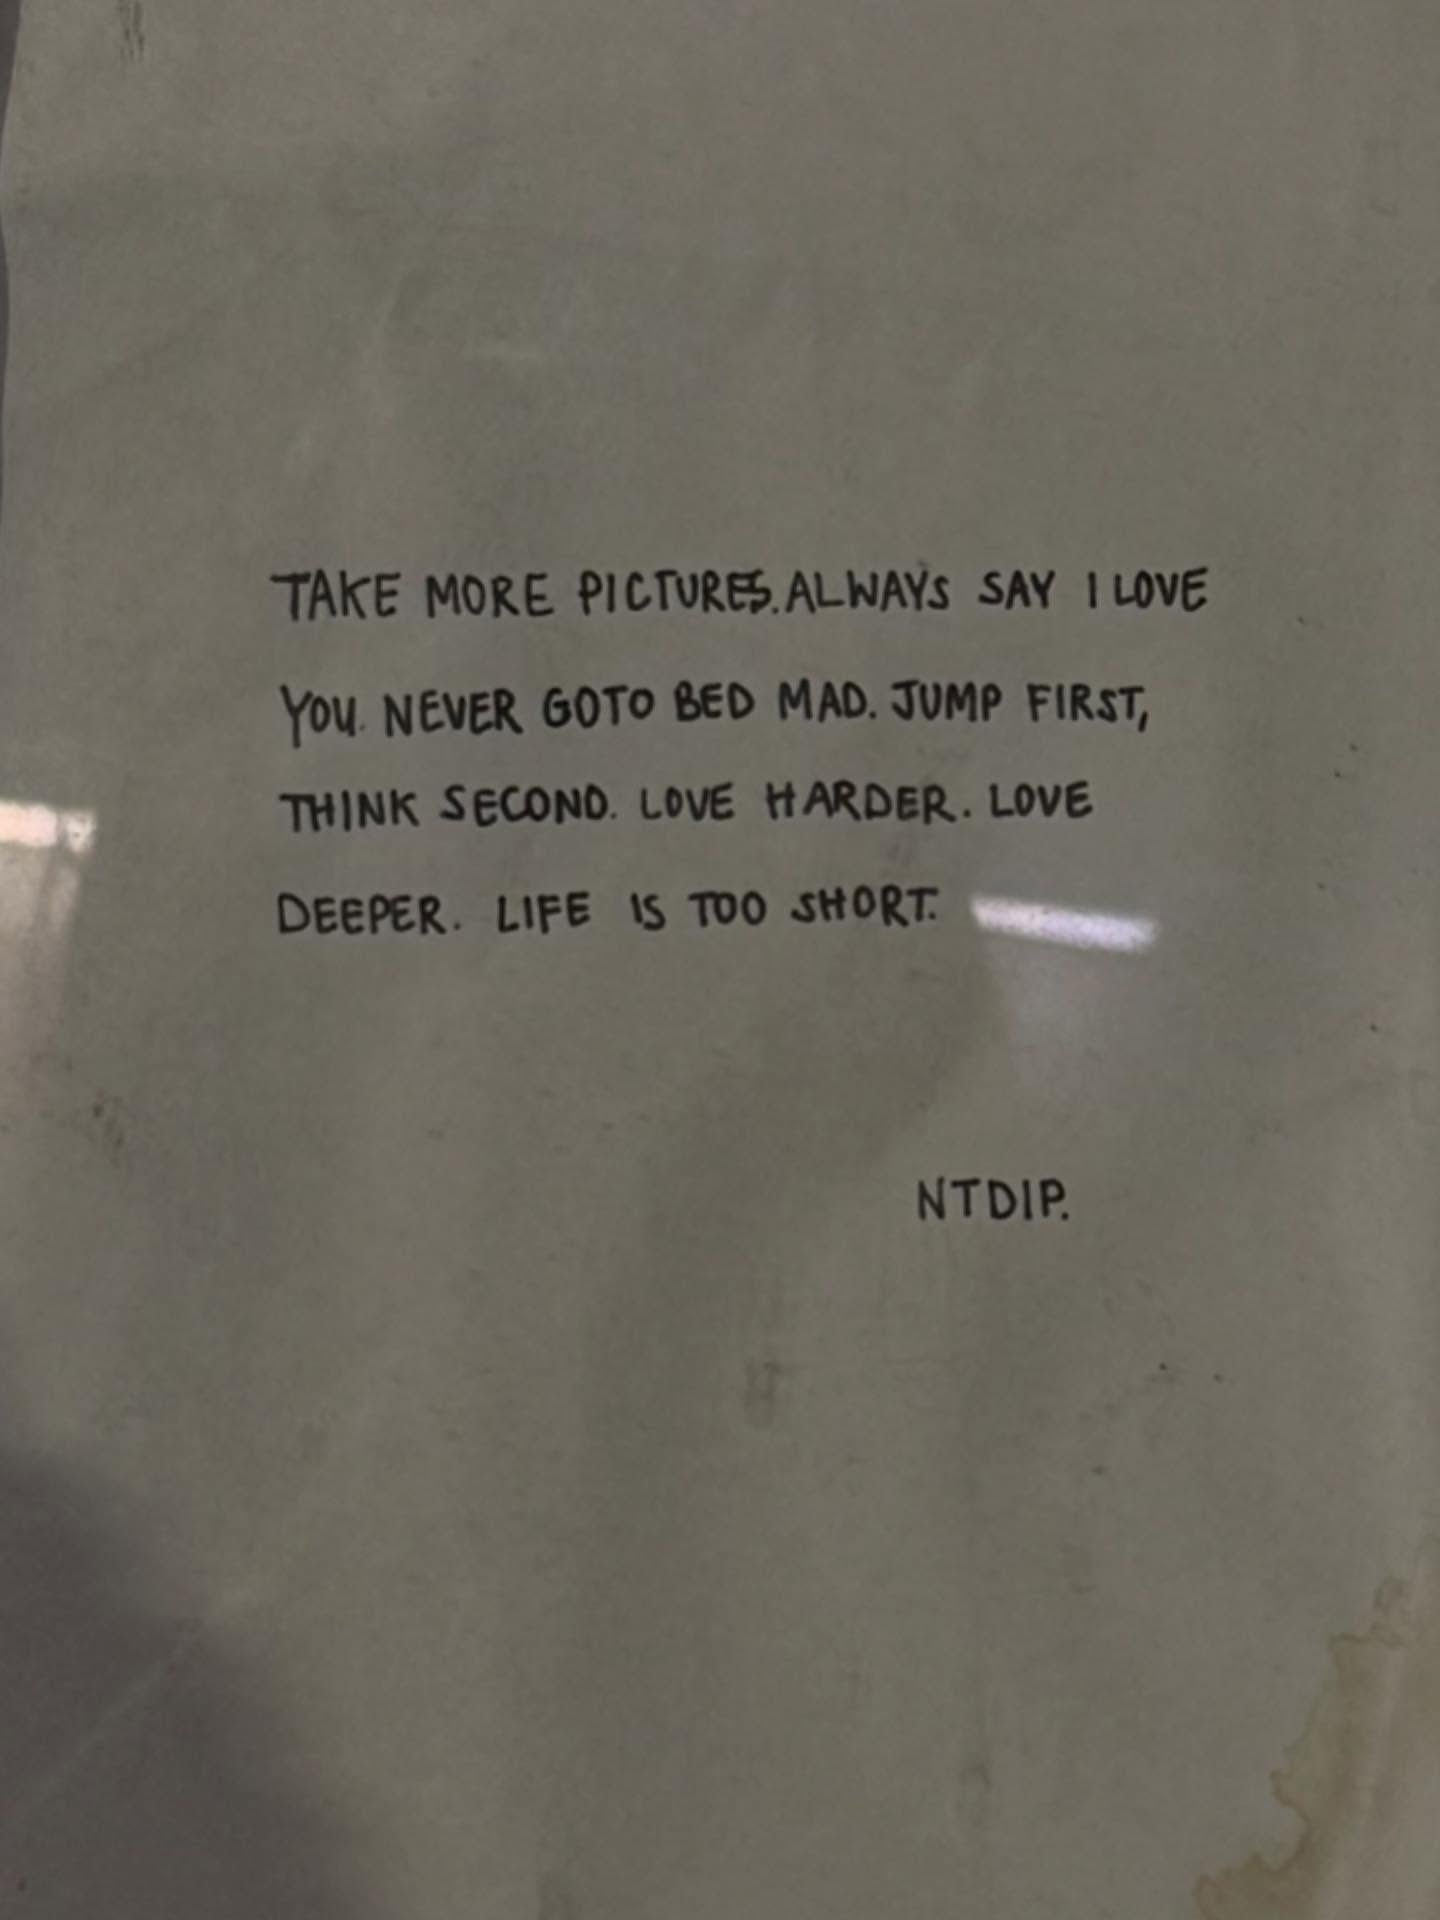 TAKE MORE PICTURES. ALWAYS SAY I LOVE
YOU. NEVER GOTO BED MAD. JUMP FIRST,
THINK SECOND. LOVE HARDER. LOVE
DEEPER. LIFE IS TOO SHORT.
NTDIP.